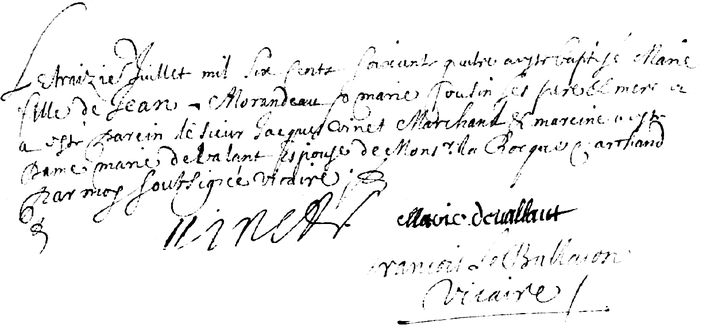 Le traizie Juillet mil six cents soixante quatre a este baptisé Marie
fille de Jean Morandeau & marie Joulin ses pere & mere et
a este parein le sieur Jacques Vinet Marchand & mareine a este
Dame marie de valant espouse de Monsr la Rocque Marchand
Par moy soubsigné vicaire
Vinet
Marie devallant
francois
Vicaire